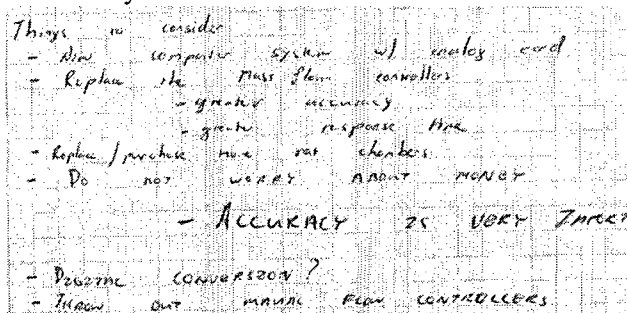 Things to consider
- New computer system w/ analog card
- Replace the mass flow controllers
- greater accuracy
- greater response time
- Replace / purchase more rat chambers
- Do NOT WORRY ABOUT MONEY
- ACCURACY IS VERY
- DIGITAL CONVERSION?
- THROW OUT MANUAL FLOW CONTROLLERS